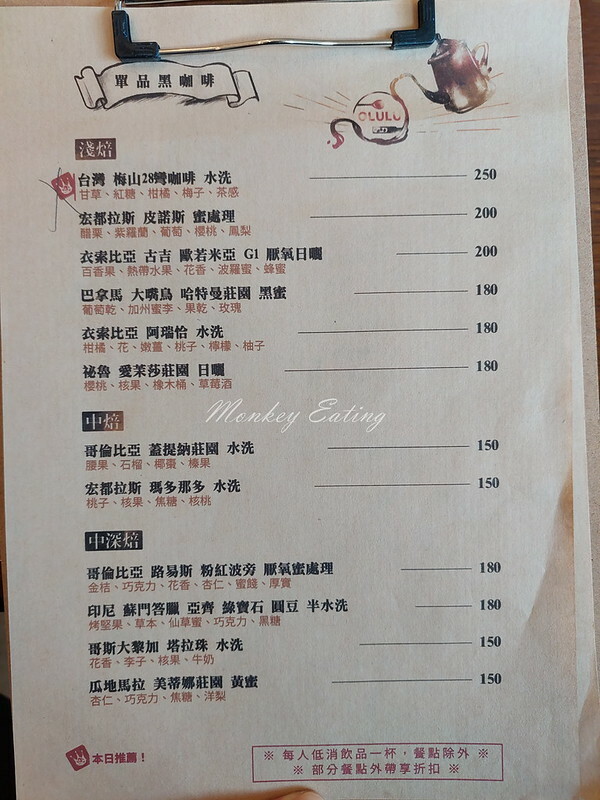 單品黑咖啡
OLULU
淺焙
台灣 梅山28彎咖啡 水洗 250
甘草、紅糖、柑橘、梅子、茶感
宏都拉斯 皮諾斯 蜜處理 200
醋栗、紫羅蘭、葡萄、櫻桃、鳳梨
衣索比亞 古吉 歐若米亞 G1 厭氧日曬 200
百香果、熱帶水果、花香、波羅蜜、蜂蜜
巴拿馬 大嘴鳥 哈特曼莊園 黑蜜 180
葡萄乾、加州蜜李、果乾、玫瑰
衣索比亞 阿瑞恰 水洗 180
柑橘、花、嫩薑、桃子、檸檬、柚子
祕魯 愛茉莎莊園 日曬 180
櫻桃、核果、橡木桶、草莓酒
Monkey Eating
中焙
哥倫比亞 蓋提納莊園 水洗 150
腰果、石榴、椰棗、榛果
宏都拉斯 瑪多那多 水洗 150
桃子、核果、焦糖、核桃
中深焙
哥倫比亞 路易斯 粉紅波旁 厭氧蜜處理 180
金桔、巧克力、花香、杏仁、蜜餞、厚實
印尼 蘇門答臘 亞齊 綠寶石 圓豆 半水洗 180
烤堅果、草本、仙草蜜、巧克力、黑糖
哥斯大黎加 塔拉珠 水洗 150
花香、李子、核果、牛奶
瓜地馬拉 美蒂娜莊園 黃蜜 150
杏仁、巧克力、焦糖、洋梨
本日推薦！
※ 每人低消飲品一杯，餐點除外 ※
※ 部分餐點外帶享折扣 ※